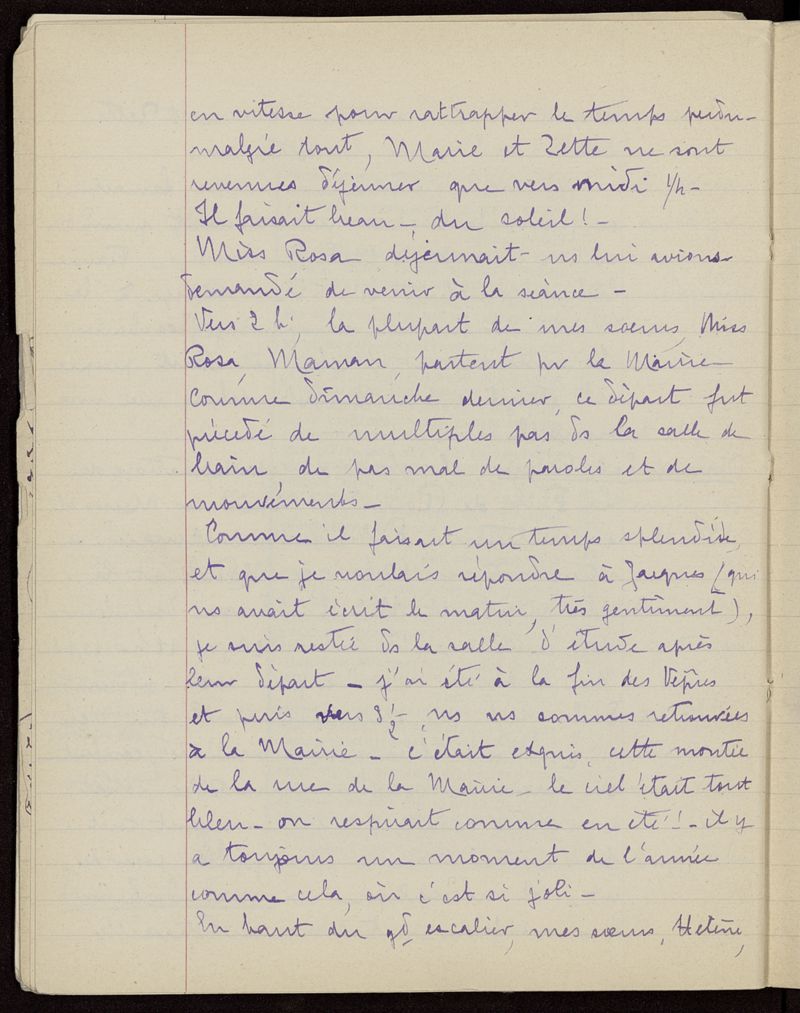 en vitesse pour rattrapper le temps perdu –
malgré tout, Marie et Zette ne sont
revenues déjeuner que vers midi ½ –
Il faisait beau –, du soleil ! –
Miss Rosa déjeunait – ns lui avions
demandé de venir à la séance –
Vers 2 h, la plupart de mes sœurs, Miss
Rosa, Maman, partent pr la Mairie
comme dimanche dernier, ce départ fut
précédé de multiples pas ds la salle de
bain, de pas mal de paroles et de
mouvements –
Comme il faisait un temps splendide,
et que je voulais répondre à Jacques (qui
ns avait écrit le matin, très gentiment),
je suis restée ds la salle d'étude après
leur départ – j'ai été à la fin des Vêpres
et puis vers 3 ½, ns ns sommes retrouvées
à la Mairie – c'était exquis, cette montée
de la rue de la Mairie – le ciel était tout
bleu – on respirait comme en été ! – il y
a toujours un moment de l'année
comme cela, où c'est si joli –
En haut du gd escalier, mes sœurs, Hélène,